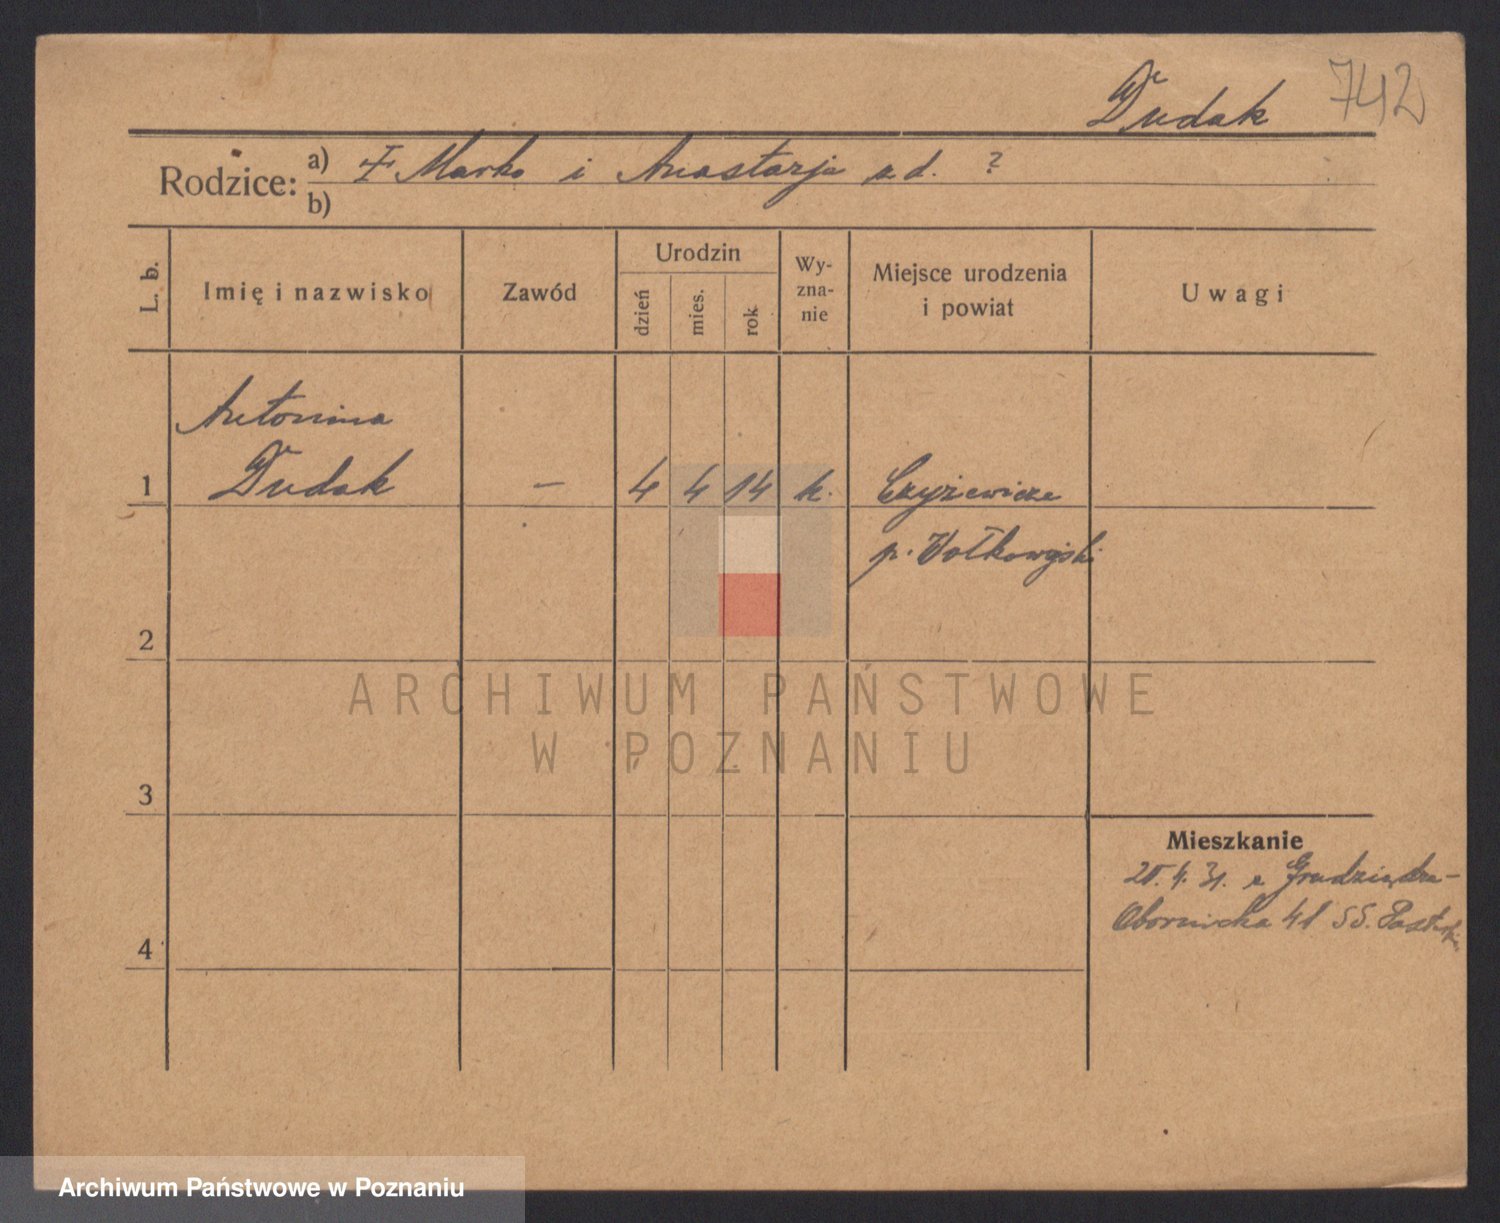 Dudak 742
Rodzice: a) ✝ Marko i Anastazja z d. ?
b)
L. b. Imię i nazwisko Zawód Urodzin dzień mies. rok Wy-zna-nie Miejsce urodzenia i powiat Uwagi
Antonina
1 Dudak – 4 4 14 k. Czyżewicze
p. Wołkowyski
2
ARCHIWUM PAŃSTWOWE
W POZNANIU
3
Mieszkanie
4. 31. z Grudziądza–
Obornicka 41 SS.
4
Archiwum Państwowe w Poznaniu